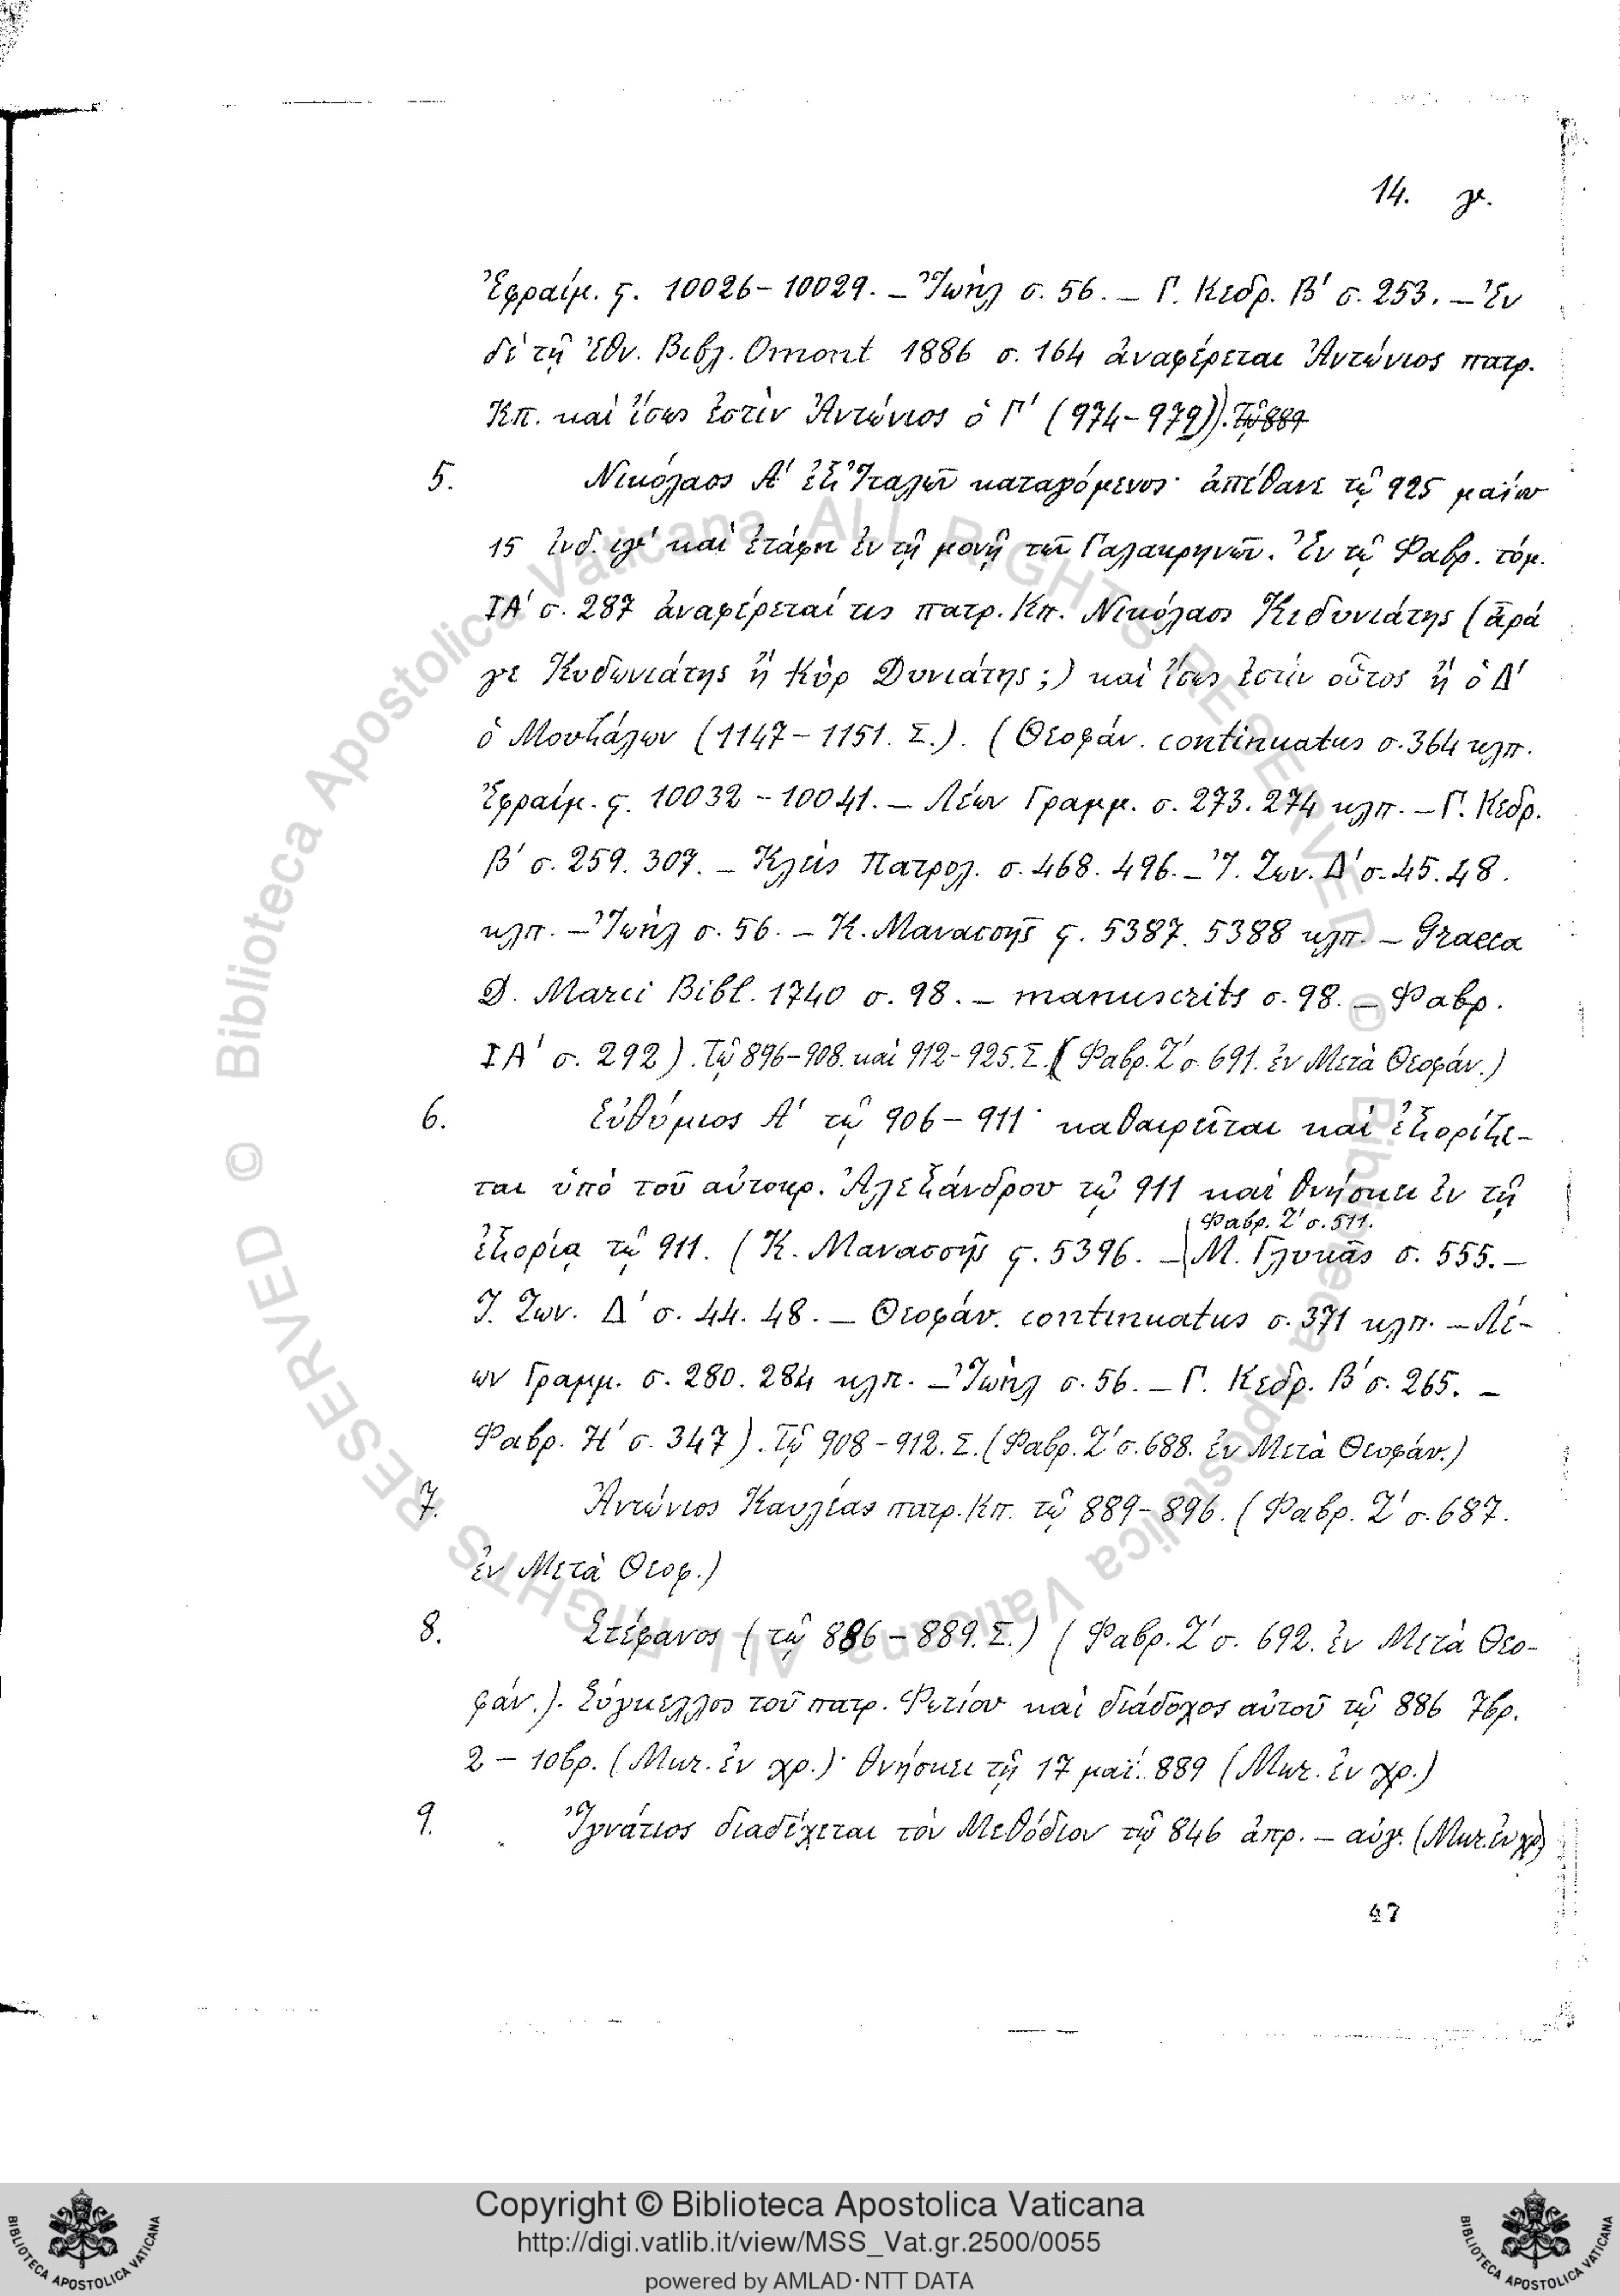 14. γε.
Ἐφραίμ. ς. 10026-10029. – Ἰωὴλ σ. 56. – Γ. Κεδρ. Β′ σ. 253. – Ἐν
δὲ τῇ Ἐθν. Βιβλ. Omont 1886 σ. 164 ἀναφέρεται Ἀντώνιος πατρ.
Κπ. καὶ ἴσως ἐστὶν Ἀντώνιος ὁ Γ′ (974-979)). Τῷ 889
5. Νικόλαος Α′ ἐξ Ἰταλῶν καταγόμενος· ἀπέθανε τῷ 925 μαΐου
15 ἰνδ. ιγ′ καὶ ἐτάφη ἐν τῇ μονῇ τῶν Γαλακρηνῶν. Ἐν τῷ Φαβρ. τόμ.
ΙΑ′ σ. 287 ἀναφέρεταί τις πατρ. Κπ. Νικόλαος Κιδυνιάτης (ἆρά
γε Κυδωνιάτης ἢ Κὺρ Δυνιάτης;) καὶ ἴσως ἐστὶν οὗτος ἢ ὁ Δ′
ὁ Μουζάλων (1147-1151. Σ.). (Θεοφάν. continuatus σ. 364 κλπ.
Ἐφραίμ. ς. 10032-10041. – Λέων Γραμμ. σ. 273. 274 κλπ. – Γ. Κεδρ.
Β′ σ. 259. 307. – Κλεὶς Πατρολ. σ. 468. 496. – Ἰ. Ζων. Δ′ σ. 45. 48.
κλπ. – Ἰωὴλ σ. 56. – Κ. Μανασσῆς ς. 5387. 5388 κλπ. – Graeca
D. Marci Bibl. 1740 σ. 98. – manuscrits σ. 98. – Φαβρ.
ΙΑ′ σ. 292). Τῷ 896-908. καὶ 912-925. Σ. (Φαβρ. Ζ′ σ. 691. ἐν Μετὰ Θεοφάν.)
6. Εὐθύμιος Α′ τῷ 906-911· καθαιρεῖται καὶ ἐξορίζε-
ται ὑπὸ τοῦ αὐτοκρ. Ἀλεξάνδρου τῷ 911 καὶ θνήσκει ἐν τῇ
Φαβρ. Ζ′ σ. 511.
ἐξορίᾳ τῷ 911. (Κ. Μανασσῆς ς. 5396. – Μ. Γλυκᾶς σ. 555. –
Ἰ. Ζων. Δ′ σ. 44. 48. – Θεοφάν. continuatus σ. 371 κλπ. – Λέ-
ων Γραμμ. σ. 280. 284 κλπ. – Ἰωὴλ σ. 56. – Γ. Κεδρ. Β′ σ. 265. –
Φαβρ. Η′ σ. 347). Τῷ 908-912. Σ. (Φαβρ. Ζ′ σ. 688. ἐν Μετὰ Θεοφάν.)
7. Ἀντώνιος Καυλέας πατρ. Κπ. τῷ 889-896. (Φαβρ. Ζ′ σ. 687.
ἐν Μετὰ Θεοφ.)
8. Στέφανος (τῷ 886-889. Σ.) (Φαβρ. Ζ′ σ. 692. ἐν Μετὰ Θεο-
φάν.). Σύγκελλος τοῦ πατρ. Φωτίου καὶ διάδοχος αὐτοῦ τῷ 886 7βρ.
2 – 10βρ. (Μυτ. ἐν χρ.)· θνήσκει τῇ 17 μαΐ. 889 (Μυτ. ἐν χρ.)
9. Ἰγνάτιος διαδέχεται τὸν Μεθόδιον τῷ 846 ἀπρ. – αὐγ. (Μυτ. ἐν χρ)
47
© Biblioteca Apostolica Vaticana ALL RIGHTS RESERVED © Biblioteca Apostolica Vaticana ALL RIGHTS RESERVED
Copyright © Biblioteca Apostolica Vaticana
http://digi.vatlib.it/view/MSS_Vat.gr.2500/0055
powered by AMLAD·NTT DATA
BIBLIOTECA APOSTOLICA VATICANA
BIBLIOTECA APOSTOLICA VATICANA